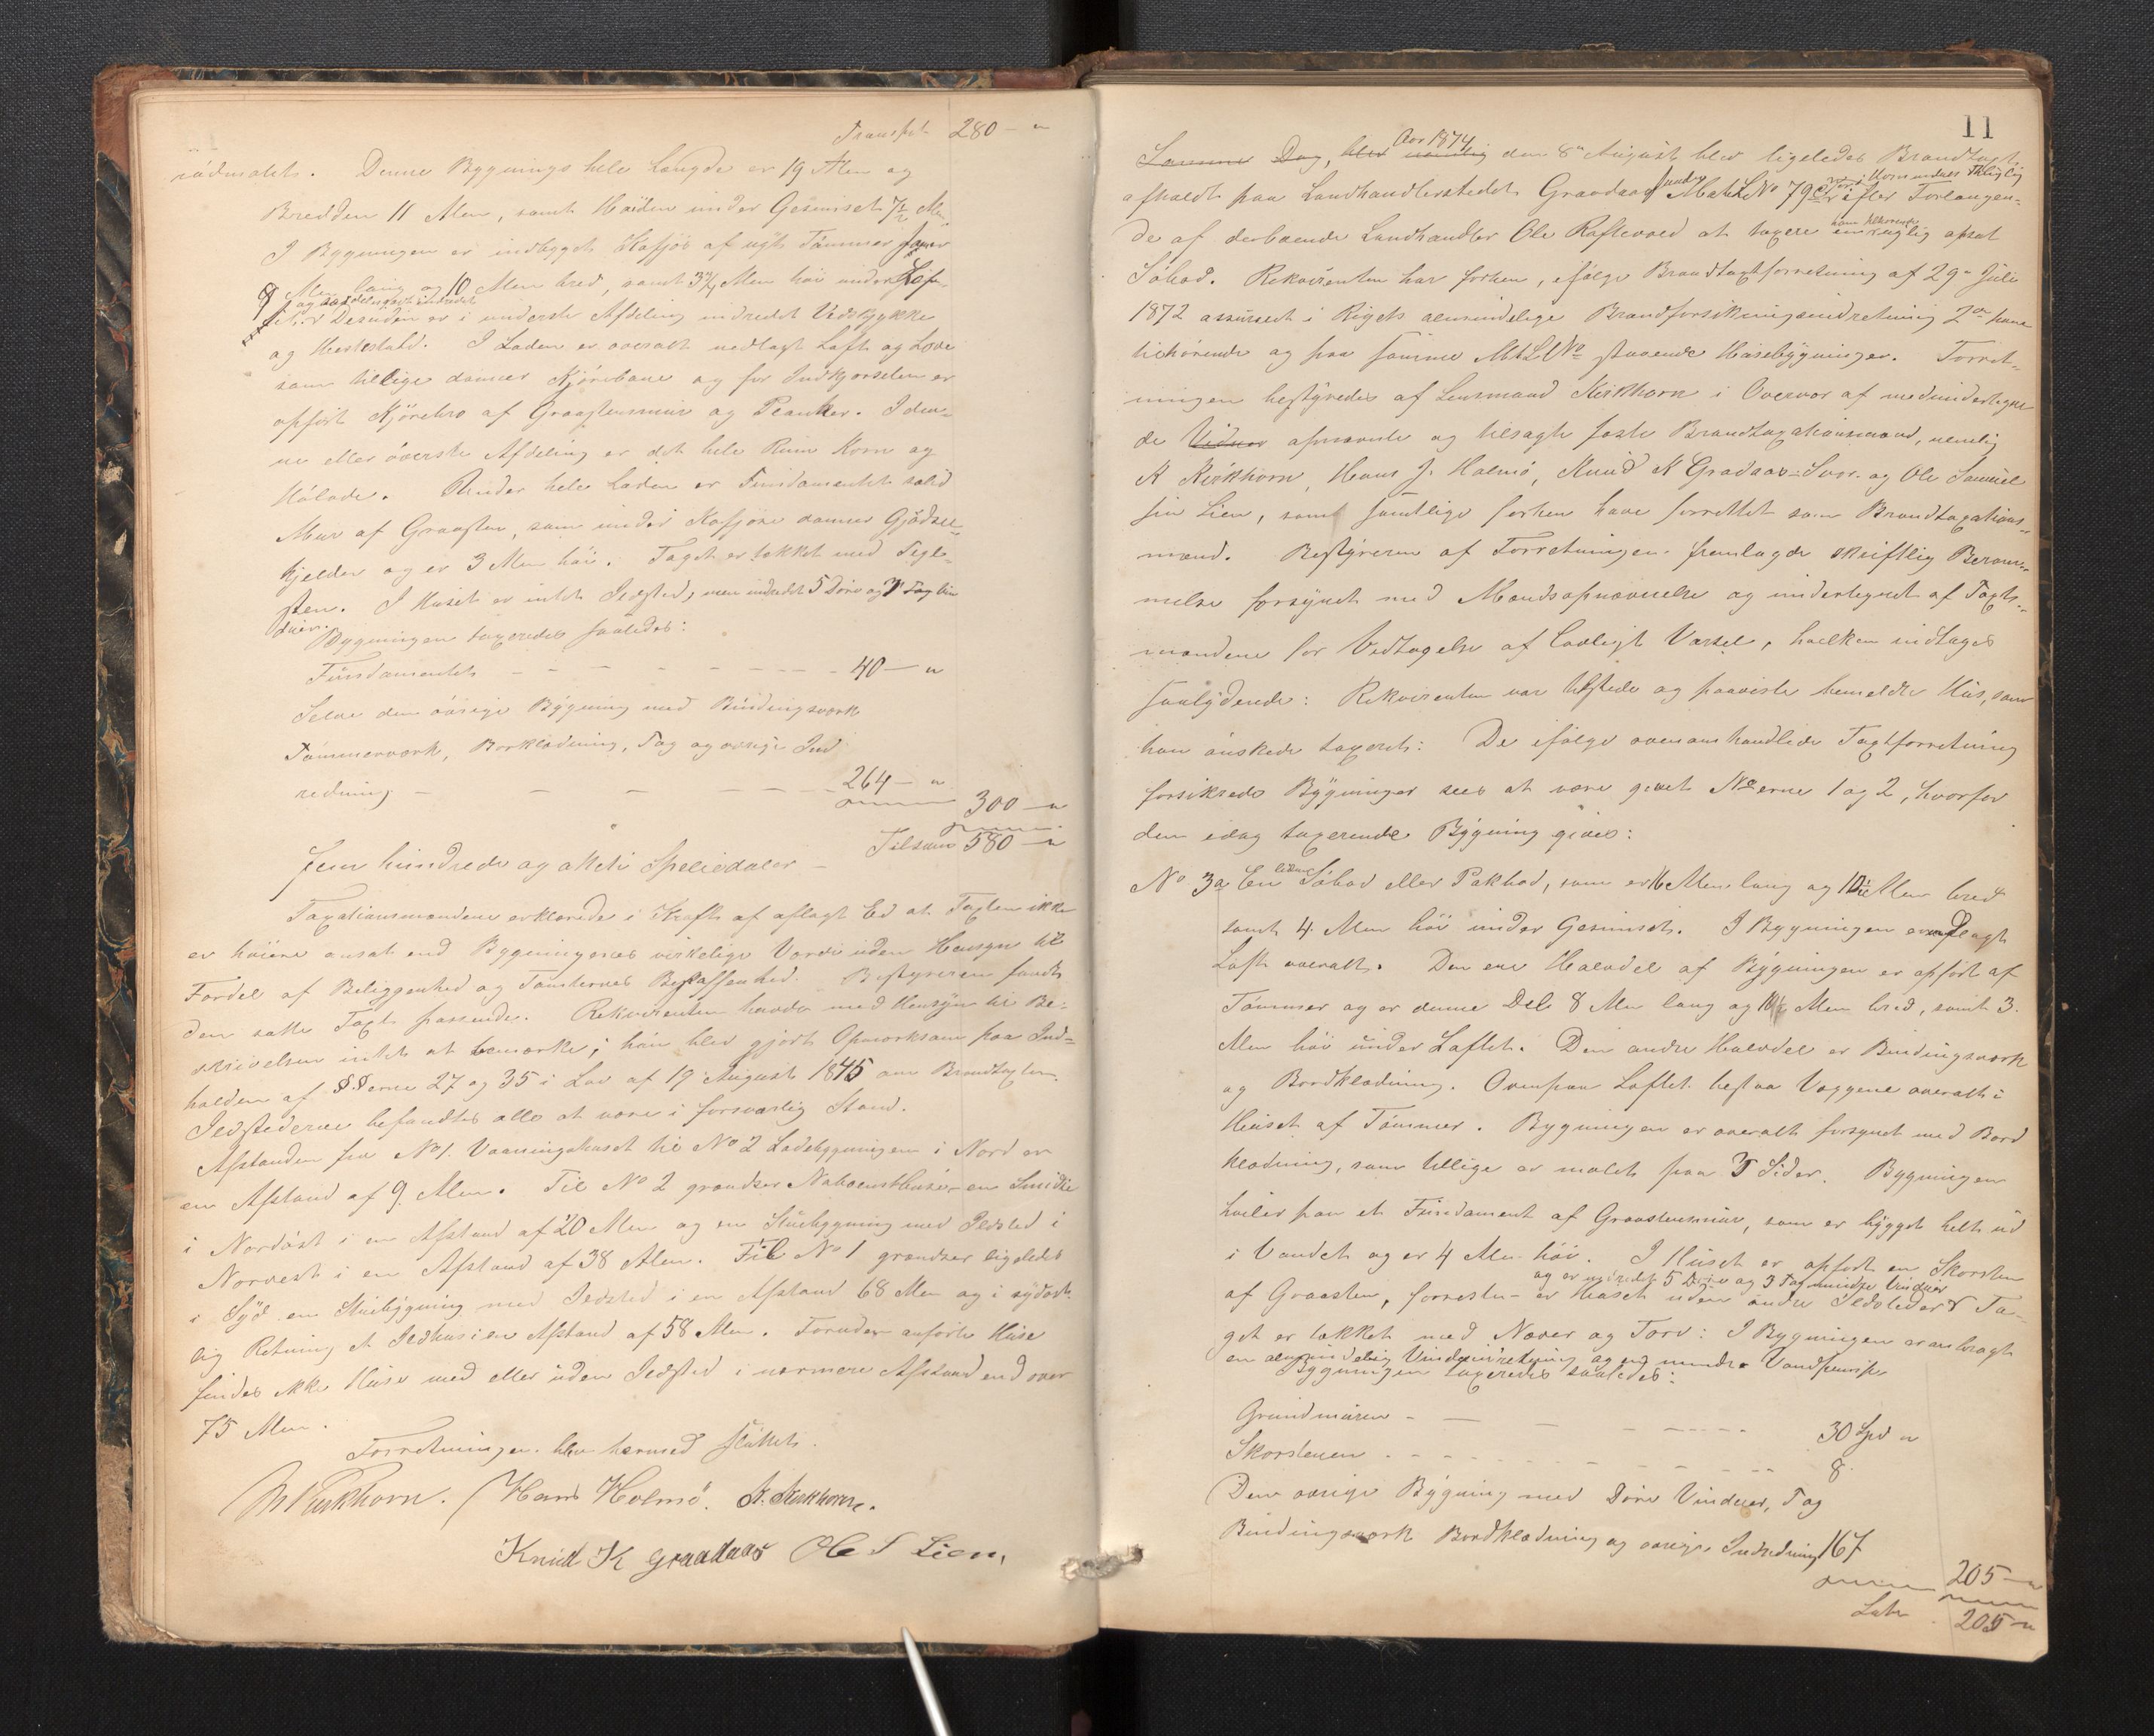 Transpt. 280 — "
rødmalet. Denne Bygnings hele Længde er 19 Alen og
Bredden 11 Alen, samt Høiden under Gesimset 7½ Alen
I Bygningen er indbygget Kofjøs af nyt Tømmer
9 Alen lang og 10 Alen bred, samt 3¼ Alen høi under
Desuden er i underste Afdeling indredet Vedskykke
og Hestestald. I Laden er overalt nedlagt Loft og Love
som tillige danner Kjørebane og for Indkjørselen er
opført Kjørebro af Graastensmur og Planker. I den-
ne eller øverste Afdeling er det hele Rum Korn og
Hølade. Under hele Laden er Fundamentet solid
Mur af Graasten, som under Kofjøset danner Gjødsel-
kjelder og er 3 Alen høi. Taget er tækket med Tegl-
sten. I Huset er intet Ildsted, men indredet 5 Døre og 3 Fag Vin
duer.
Bygningen taxeredes saaledes:
Fundamentet — — — — — 40 — "
Selve den øvrige Bygning med Bindingsværk
Tømmerværk, Bordklædning, Tag og øvrige Ind
redning — — — — 264 — "
300 — "
Tilsam 580 — "
fem hundrede og otteti Speciedaler —
Taxationsmændene erklærede i Kraft af aflagt Ed at Taxten ikke
er høiere ansat end Bygningernes virkelige Værdi uden Hensyn til
Fordel af Beliggenhed og Tomternes Beskaffenhed. Bestyreren fandt
den satte Taxt passende. Rekvirenten havde med Hensyn til Be-
skrivelsen intet at bemærke; han blev gjort Opmærksom paa Ind-
holden af §§erne 27 og 35 i Lov af 19 August 1845 om Brandtaxten.
Ildstederne befandtes alle at være i forsvarlig Stand.
Afstanden fra No 1. Vaaningshuset til No 2 Ladebygningen i Nord er
en Afstand af 9 Alen. Til No 2 grændser Naboens Huse, en Smidie
i Nordøst i en Afstand af 20 Alen og en Stuebygning med Ildsted i
Norvest i en Afstand af 38 Alen. Til No 1 grændser ligeledes
i Syd en Stuebygning med Ildsted i en Afstand 68 Alen og i sydøst
lig Retning et Ildhus i en Afstand af 58 Alen. Foruden anførte Huse
findes ikke Huse med eller uden Ildsted i nærmere Afstand end over
75 Alen.
Forretningen blev hermed sluttet.
Kirkhorn. Hans Holmø. K. Kirkhorn.
Knud K Graadaas Ole S Lien,
11
Samme Dag, blev nemlig Aar 1874 den 8de August blev ligeledes Brandtaxt
afholdt paa Landhandlerstedet Graadaas under Matr.L.No 79 efter Forlangen-
de af derboende Landhandler Ole Raftevold at taxere en ham tilhørende nylig opsat
Søbod. Rekvirenten har forhen, ifølge Brandtaxtforretning af 29de Juli
1872 assureret i Rigets almindelige Brandforsikringsindretning 2de ham
tilhørende og paa samme Mt.L.No staaende Husebygninger. Forret-
ningen bestyredes af Lensmand Kirkhorn i Overvær af medundertegne
de Vidner opnævnte og tilsagte faste Brandtaxationsmænd, nemlig
K Kirkhorn, Hans J. Holmø, Knud K Graadaas Svor. og Ole Samuel
sen Lien, som samtlige forhen have forrettet som Brandtaxations-
mænd. Bestyreren af Forretningen fremlagde skriftlig Beram-
melse forsynet med Mandsopnævnelse og undertegnet af Taxt-
mændene for Vedtagelse af lovligt Varsel, hvilken indtages
saalydende: Rekvirenten var tilstede og paaviste bemeldte Hus, som
han ønskede taxeret: De ifølge ovenomhandlede Taxtforretning
forsikrede Bygninger sees at være givet Noerne 1 og 2, hvorfor
den idag taxerende Bygning gives:
No 3a En Søbod eller Pakbod, som er 16 Alen lang og 10½ Alen bred
samt 4 Alen høi under Gesimset. I Bygningen er nedlagt
Loft overalt. Den ene Halvdel af Bygningen er opført af
Tømmer og er denne Del 8 Alen lang og 10½ Alen bred, samt 3.
Alen høi under Loftet. Den andre Halvdel er Bindingsværk
og Bordklædning. Ovenpaa Loftet bestaa Væggene overalt i
Huset af Tømmer. Bygningen er overalt forsynet med Bord
klædning, som tillige er malet paa 3 Sider. Bygningen
hviler paa et Fundament af Graastensmur, som er bygget helt ud
i Vandet og er 4 Alen høi. I Huset er opført en Skorsten
og er indredet 5 Døre og 3 Fag mindre Vinduer
af Graasten, forresten er Huset uden andre Ildsteder Ta-
get er tækket med Næver og Torv: I Bygningen er anbragt
en almindelig Vindeindretning og en mindre
Bygningen taxeredes saaledes:
Grundmuren — — — 30 Spd "
Skorstenen — — — 8
Den øvrige Bygning med Døre Vinduer, Tag
Bindingsværk Bordklædning og øvrige Indredning 167
205 — "
Lat. 205 — "